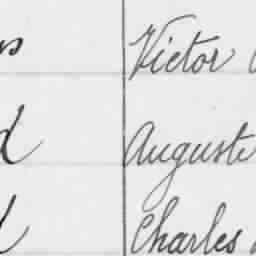 Victor
Auguste
Charles